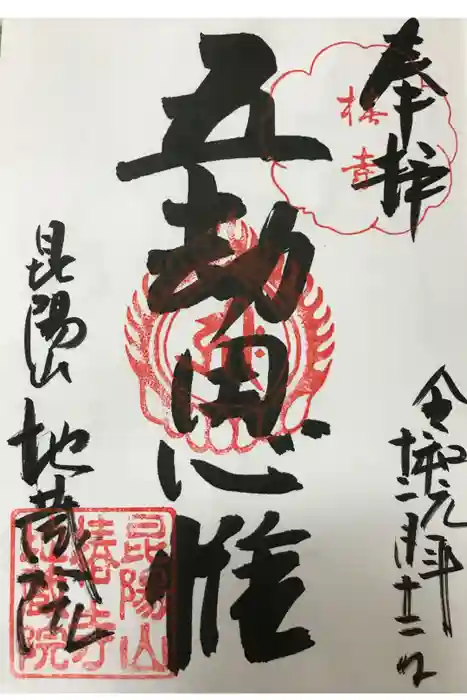 奉拝
椿寺
五劫思惟
令和元年
十二月十二日
昆陽山
地蔵院
昆陽山
椿寺
地蔵院